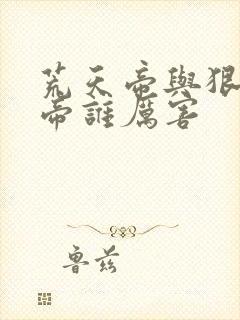 荒天帝與狠
帝誰厲害
魯茲